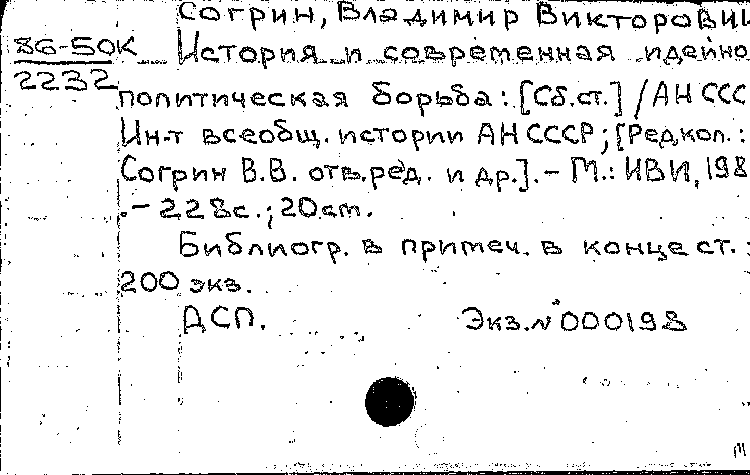 Согрин, Владимир Викторович
86-50К История и современная идейно
2232
политическая борьба: [Сб.ст.] / АН ССС
Ин-т всеобщ. истории АН СССР; [Редкол.:
Согрин В.В. отв.ред. и др.].- М.: ИВИ, 198
.- 228с.; 20см.
Библиогр. в примеч. в конце ст.:
200 экз.
ДСП. Экз.№000198